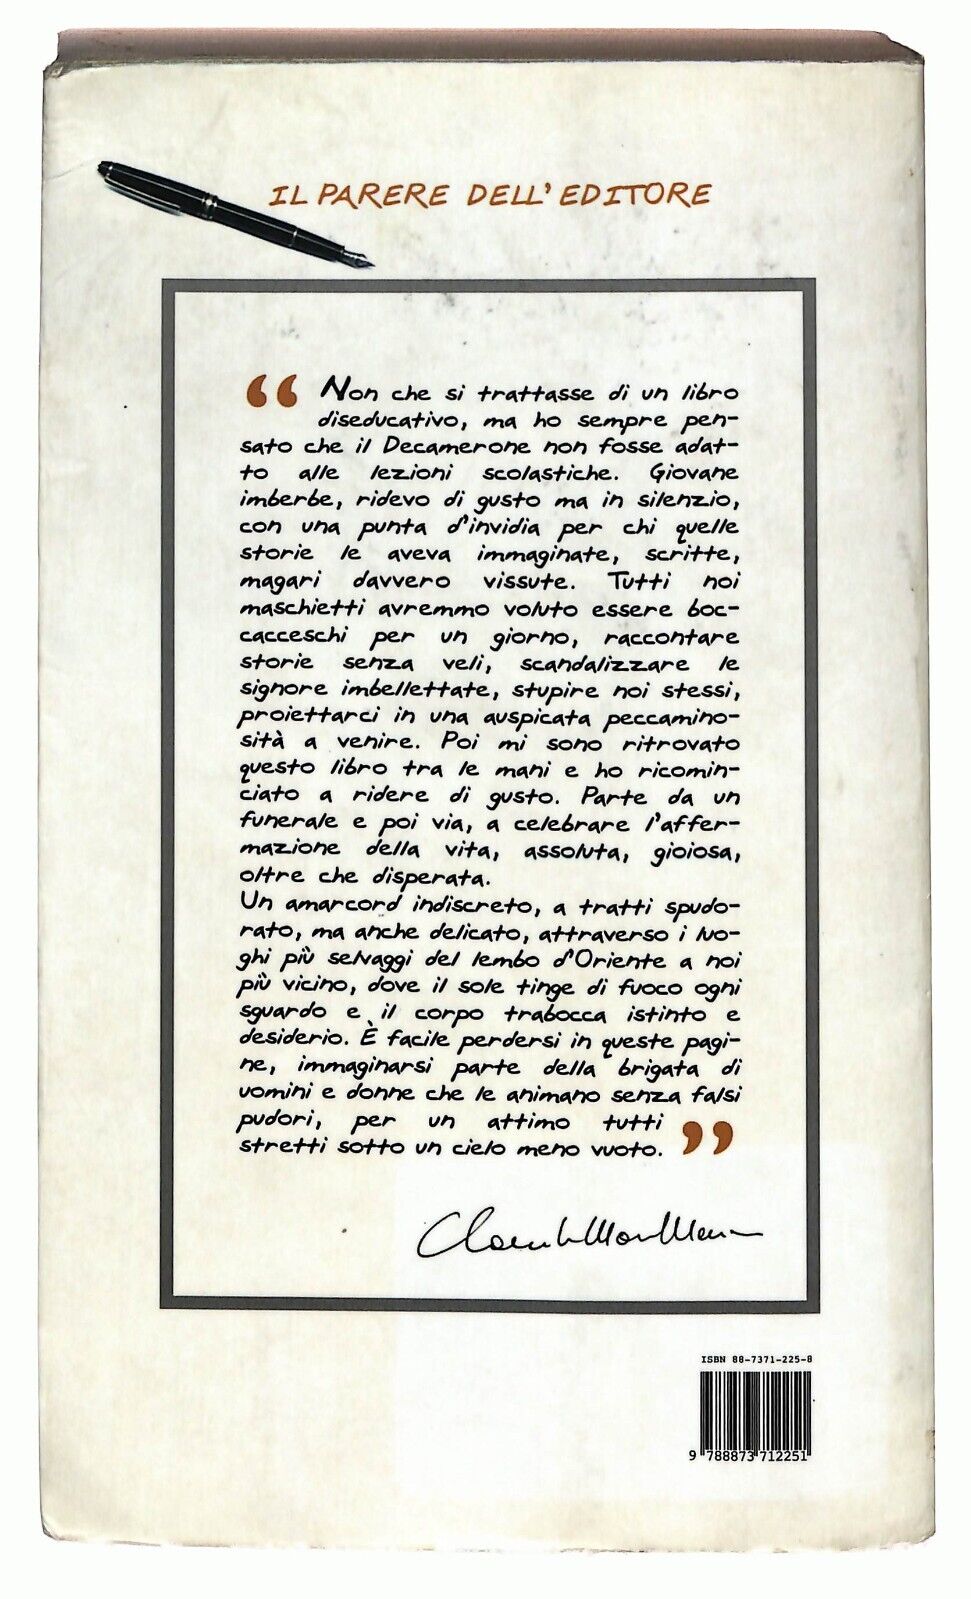 IL PARERE DELL'EDITORE
“ Non che si trattasse di un libro
diseducativo, ma ho sempre pen-
sato che il Decamerone non fosse adat-
to alle lezioni scolastiche. Giovane
imberbe, ridevo di gusto ma in silenzio,
con una punta d'invidia per chi quelle
storie le aveva immaginate, scritte,
magari davvero vissute. Tutti noi
maschietti avremmo voluto essere boc-
cacceschi per un giorno, raccontare
storie senza veli, scandalizzare le
signore imbellettate, stupire noi stessi,
proiettarci in una auspicata peccamino-
sità a venire. Poi mi sono ritrovato
questo libro tra le mani e ho ricomin-
ciato a ridere di gusto. Parte da un
funerale e poi via, a celebrare l'affer-
mazione della vita, assoluta, gioiosa,
oltre che disperata.
Un amarcord indiscreto, a tratti spudo-
rato, ma anche delicato, attraverso i luo-
ghi più selvaggi del lembo d'Oriente a noi
più vicino, dove il sole tinge di fuoco ogni
sguardo e il corpo trabocca istinto e
desiderio. È facile perdersi in queste pagi-
ne, immaginarsi parte della brigata di
uomini e donne che le animano senza falsi
pudori, per un attimo tutti
stretti sotto un cielo meno vuoto. ”
ISBN 88-7371-225-8
9 788873 712251